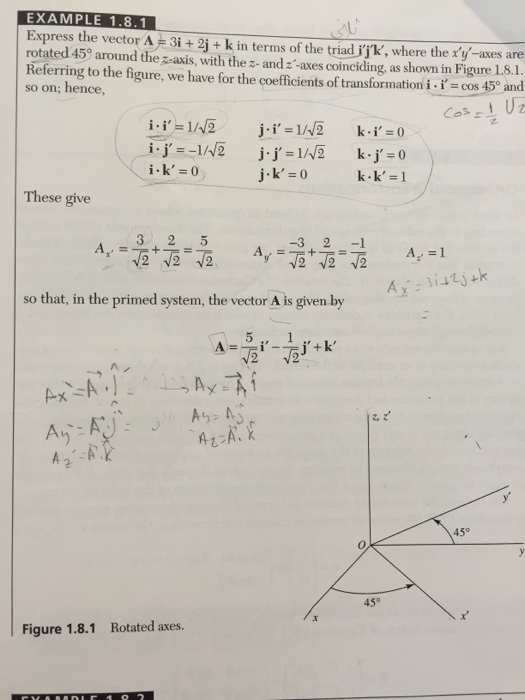 EXAMPLE 1.8.1
Express the vector A = 3i + 2j + k in terms of the triad i'j'k', where the x'y'–axes are
rotated 45° around the z-axis, with the z- and z'-axes coinciding, as shown in Figure 1.8.1.
Referring to the figure, we have for the coefficients of transformation i · i' = cos 45° and
so on; hence,
Cos = 1/2 √2
i · i' = 1/√2 j · i' = 1/√2 k · i' = 0
i · j' = –1/√2 j · j' = 1/√2 k · j' = 0
i · k' = 0 j · k' = 0 k · k' = 1
These give
A_x' = 3/√2 + 2/√2 = 5/√2 A_y' = –3/√2 + 2/√2 = –1/√2 A_z' = 1
Ax = 3i+2j+k
=
so that, in the primed system, the vector A is given by
A = 5/√2 i' – 1/√2 j' + k'
Ax = A · i = Ax = A i
Ay = A j = Ay = A j
Az = A · k Az = A · k
z z'
y'
45°
O
y
45°
x
x'
Figure 1.8.1 Rotated axes.